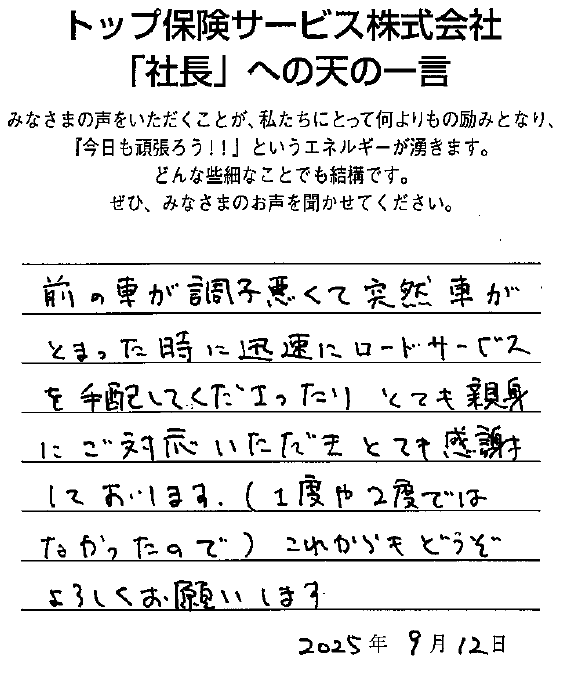 トップ保険サービス株式会社
「社長」への天の一言
みなさまの声をいただくことが、私たちにとって何よりもの励みとなり、
『今日も頑張ろう!!』というエネルギーが湧きます。
どんな些細なことでも結構です。
ぜひ、みなさまのお声を聞かせてください。
前の車が調子悪くて突然車が
とまった時に迅速にロードサービス
を手配してくださったり とても親身
にご対応いただき とても感謝
しております.(1度や2度では
なかったので) これからもどうぞ
よろしくお願いします
2025年 9月12日